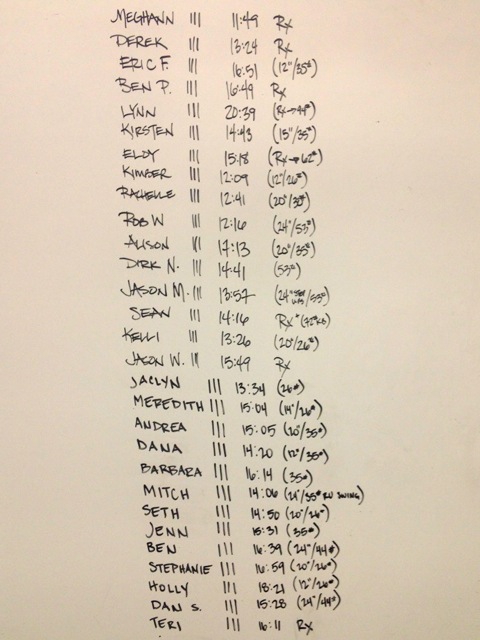 MEGHANN ||| 11:49 Rx
DEREK ||| 13:24 Rx
ERIC F. ||| 16:51 (12"/35#)
BEN P. ||| 16:49 Rx
LYNN ||| 20:39 (Rx→44#)
KIRSTEN ||| 14:43 (15"/35#)
ELOY ||| 15:18 (Rx→62#)
KIMBER ||| 12:09 (12"/26#)
RACHELLE ||| 12:41 (20"/30#)
ROB W ||| 12:16 (24"/53#)
ALISON ||| 17:13 (20"/35#)
DIRK N. ||| 14:41 (53#)
JASON M. ||| 13:57 (24" /53#)
SEAN ||| 14:16 Rx*(72#KB)
KELLI ||| 13:26 (20"/26#)
JASON W. ||| 15:49 Rx
JACLYN ||| 13:34 (26#)
MEREDITH ||| 15:04 (14"/26#)
ANDREA ||| 15:05 (20"/35#)
DANA ||| 14:20 (12"/35#)
BARBARA ||| 16:14 (35#)
MITCH ||| 14:06 (24"/35# RU SWING)
SETH ||| 14:50 (20"/26#)
JENN ||| 15:31 (35#)
BEN ||| 16:39 (24"/44#)
STEPHANIE ||| 16:59 (20"/26#)
HOLLY ||| 18:21 (12"/26#)
DAN S. ||| 15:28 (24"/44#)
TERI ||| 16:11 Rx